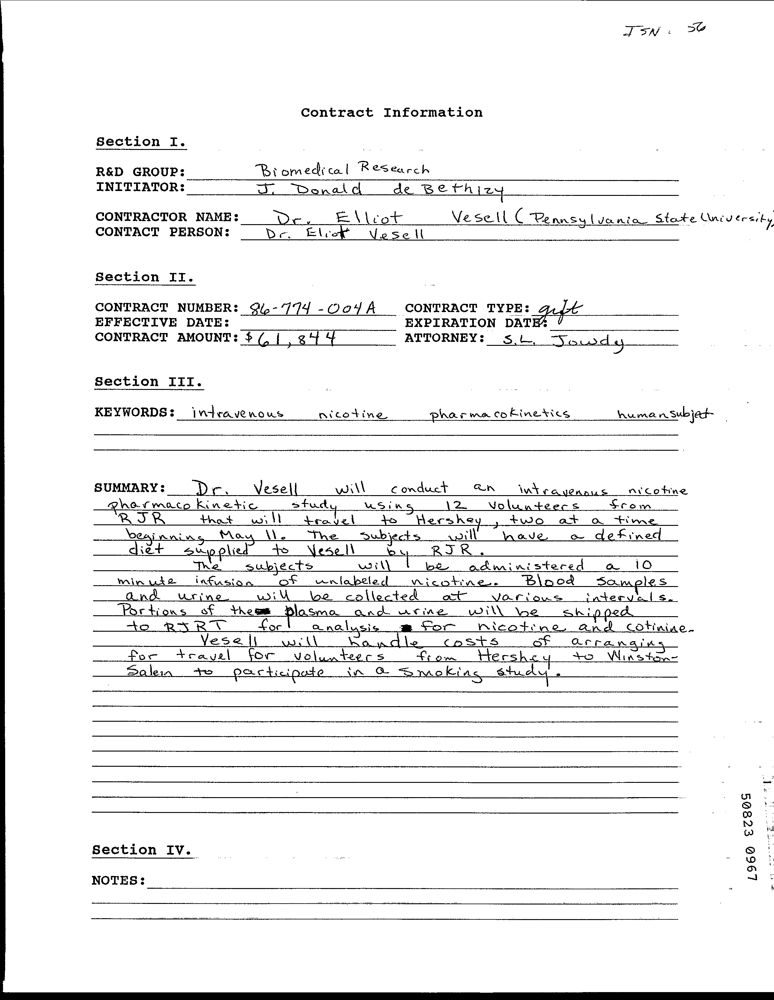 JSN. 56
Contract Information
Section I.
R&D GROUP: Biomedical Research
INITIATOR: J. Donald de Bethizy
CONTRACTOR NAME: Dr. Elliot Vesell (Pennsylvania State University)
CONTACT PERSON: Dr. Eliot Vesell
Section II.
CONTRACT NUMBER: 86-774-004A CONTRACT TYPE: gift
EFFECTIVE DATE: EXPIRATION DATE:
CONTRACT AMOUNT: $61,844 ATTORNEY: S.L. Jowdy
Section III.
KEYWORDS: intravenous nicotine pharmacokinetics human subject
SUMMARY: Dr. Vesell will conduct an intravenous nicotine
pharmacokinetic study using 12 volunteers from
RJR that will travel to Hershey, two at a time
beginning May 11. The subjects will have a defined
diet supplied to Vesell by RJR.
The subjects will be administered a 10
minute infusion of unlabeled nicotine. Blood samples
and urine will be collected at various intervals.
Portions of the plasma and urine will be shipped
to RJRT for analysis for nicotine and cotinine.
Vesell will handle costs of arranging
for travel for volunteers from Hershey to Winston-
Salem to participate in a smoking study.
Section IV.
NOTES:
50823 0967